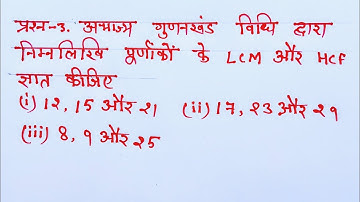 प्रश्न-3. अभाज्य गुणनखंड विधि द्वारा
निम्नलिखि पूर्णांकों के LCM और HCF
ज्ञात कीजिए
(i) 12, 15 और 21 (ii) 17, 23 और 29
(iii) 8, 9 और 25